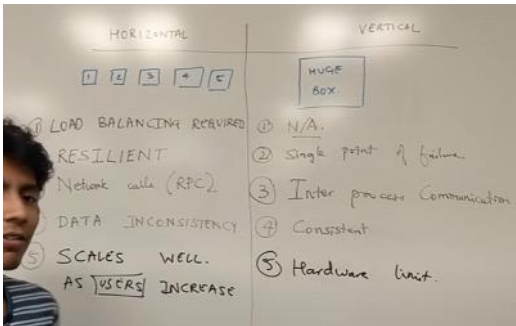 HORIZONTAL
1 2 3 4 5
① LOAD BALANCING REQUIRED
RESILIENT
Network calls (RPC)
DATA INCONSISTENCY
⑤ SCALES WELL.
AS USERS INCREASE
VERTICAL
HUGE
BOX.
① N/A.
② Single point of failure.
③ Inter process Communication
④ Consistent
⑤ Hardware limit.